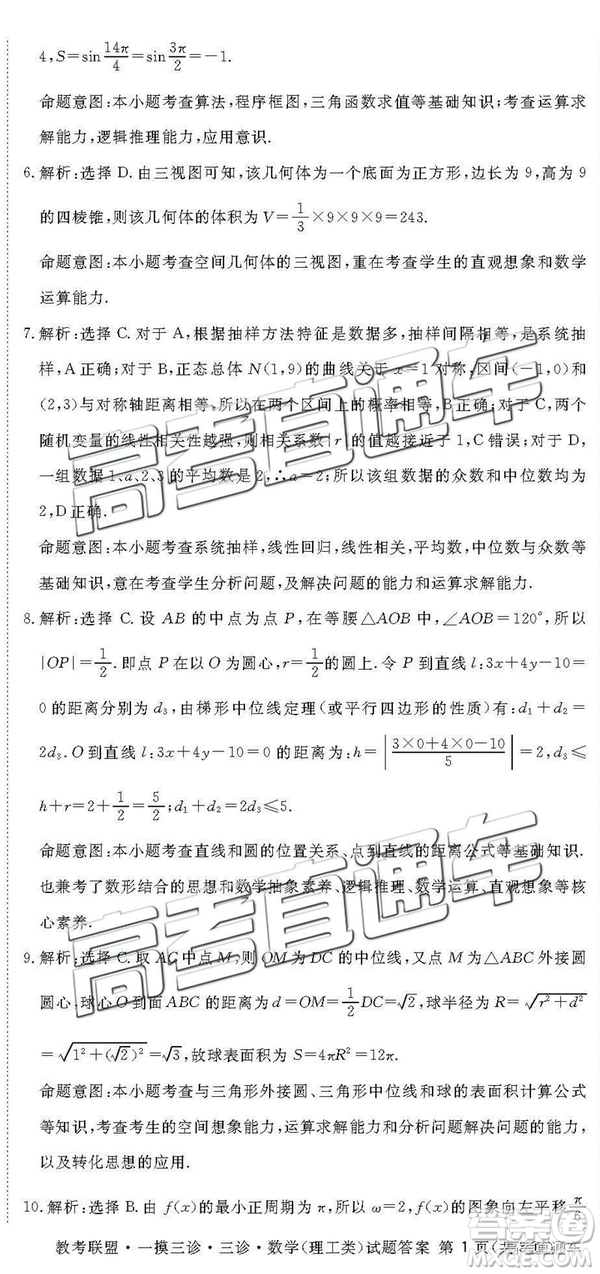 4,S=sin 14π/4=sin 3π/2=-1.
命题意图:本小题考查算法,程序框图,三角函数求值等基础知识;考查运算求
解能力,逻辑推理能力,应用意识.
6. 解析:选择 D. 由三视图可知,该几何体为一个底面为正方形,边长为 9,高为 9
的四棱锥,则该几何体的体积为 V=1/3×9×9×9=243.
命题意图:本小题考查空间几何体的三视图,重在考查学生的直观想象和数学
运算能力.
7. 解析:选择 C. 对于 A,根据抽样方法特征是数据多,抽样间隔相等,是系统抽
样,A 正确;对于 B,正态总体 N(1,9)的曲线关于 x=1 对称,区间(-1,0)和
(2,3)与对称轴距离相等,所以在两个区间上的概率相等,B 正确;对于 C,两个
随机变量的线性相关性越强,则相关系数|r|的值越接近于 1,C 错误;对于 D,
一组数据 1、a、2、3 的平均数是 2,∴a=2;所以该组数据的众数和中位数均为
2,D 正确.
命题意图:本小题考查系统抽样,线性回归,线性相关,平均数,中位数与众数等
基础知识,意在考查学生分析问题,及解决问题的能力和运算求解能力.
8. 解析:选择 C. 设 AB 的中点为点 P,在等腰△AOB 中,∠AOB=120°,所以
|OP|=1/2. 即点 P 在以 O 为圆心,r=1/2的圆上. 令 P 到直线 l:3x+4y-10=
0 的距离分别为 d₃,由梯形中位线定理(或平行四边形的性质)有:d₁+d₂=
2d₃. O 到直线 l:3x+4y-10=0 的距离为:h=|(3×0+4×0-10)/5|=2,d₃≤
h+r=2+1/2=5/2;d₁+d₂=2d₃≤5.
命题意图:本小题考查直线和圆的位置关系、点到直线的距离公式等基础知识.
也兼考了数形结合的思想和数学抽象素养、逻辑推理、数学运算、直观想象等核
心素养.
9. 解析:选择 C. 取 AC 中点 M,则 OM 为 DC 的中位线,又点 M 为△ABC 外接圆
圆心,球心 O 到面 ABC 的距离为 d=OM=1/2DC=√2,球半径为 R=√(r²+d²)
=√(1²+(√2)²)=√3,故球表面积为 S=4πR²=12π.
命题意图:本小题考查与三角形外接圆、三角形中位线和球的表面积计算公式
等知识,考查考生的空间想象能力,运算求解能力和分析问题解决问题的能力,
以及转化思想的应用.
10. 解析:选择 B. 由 f(x)的最小正周期为 π,所以 ω=2,f(x)的图象向左平移π/6
教考联盟·一摸三诊·三诊·数学(理工类)试题答案 第 1 页(共
高考直通车
高考直通车
高考直通车